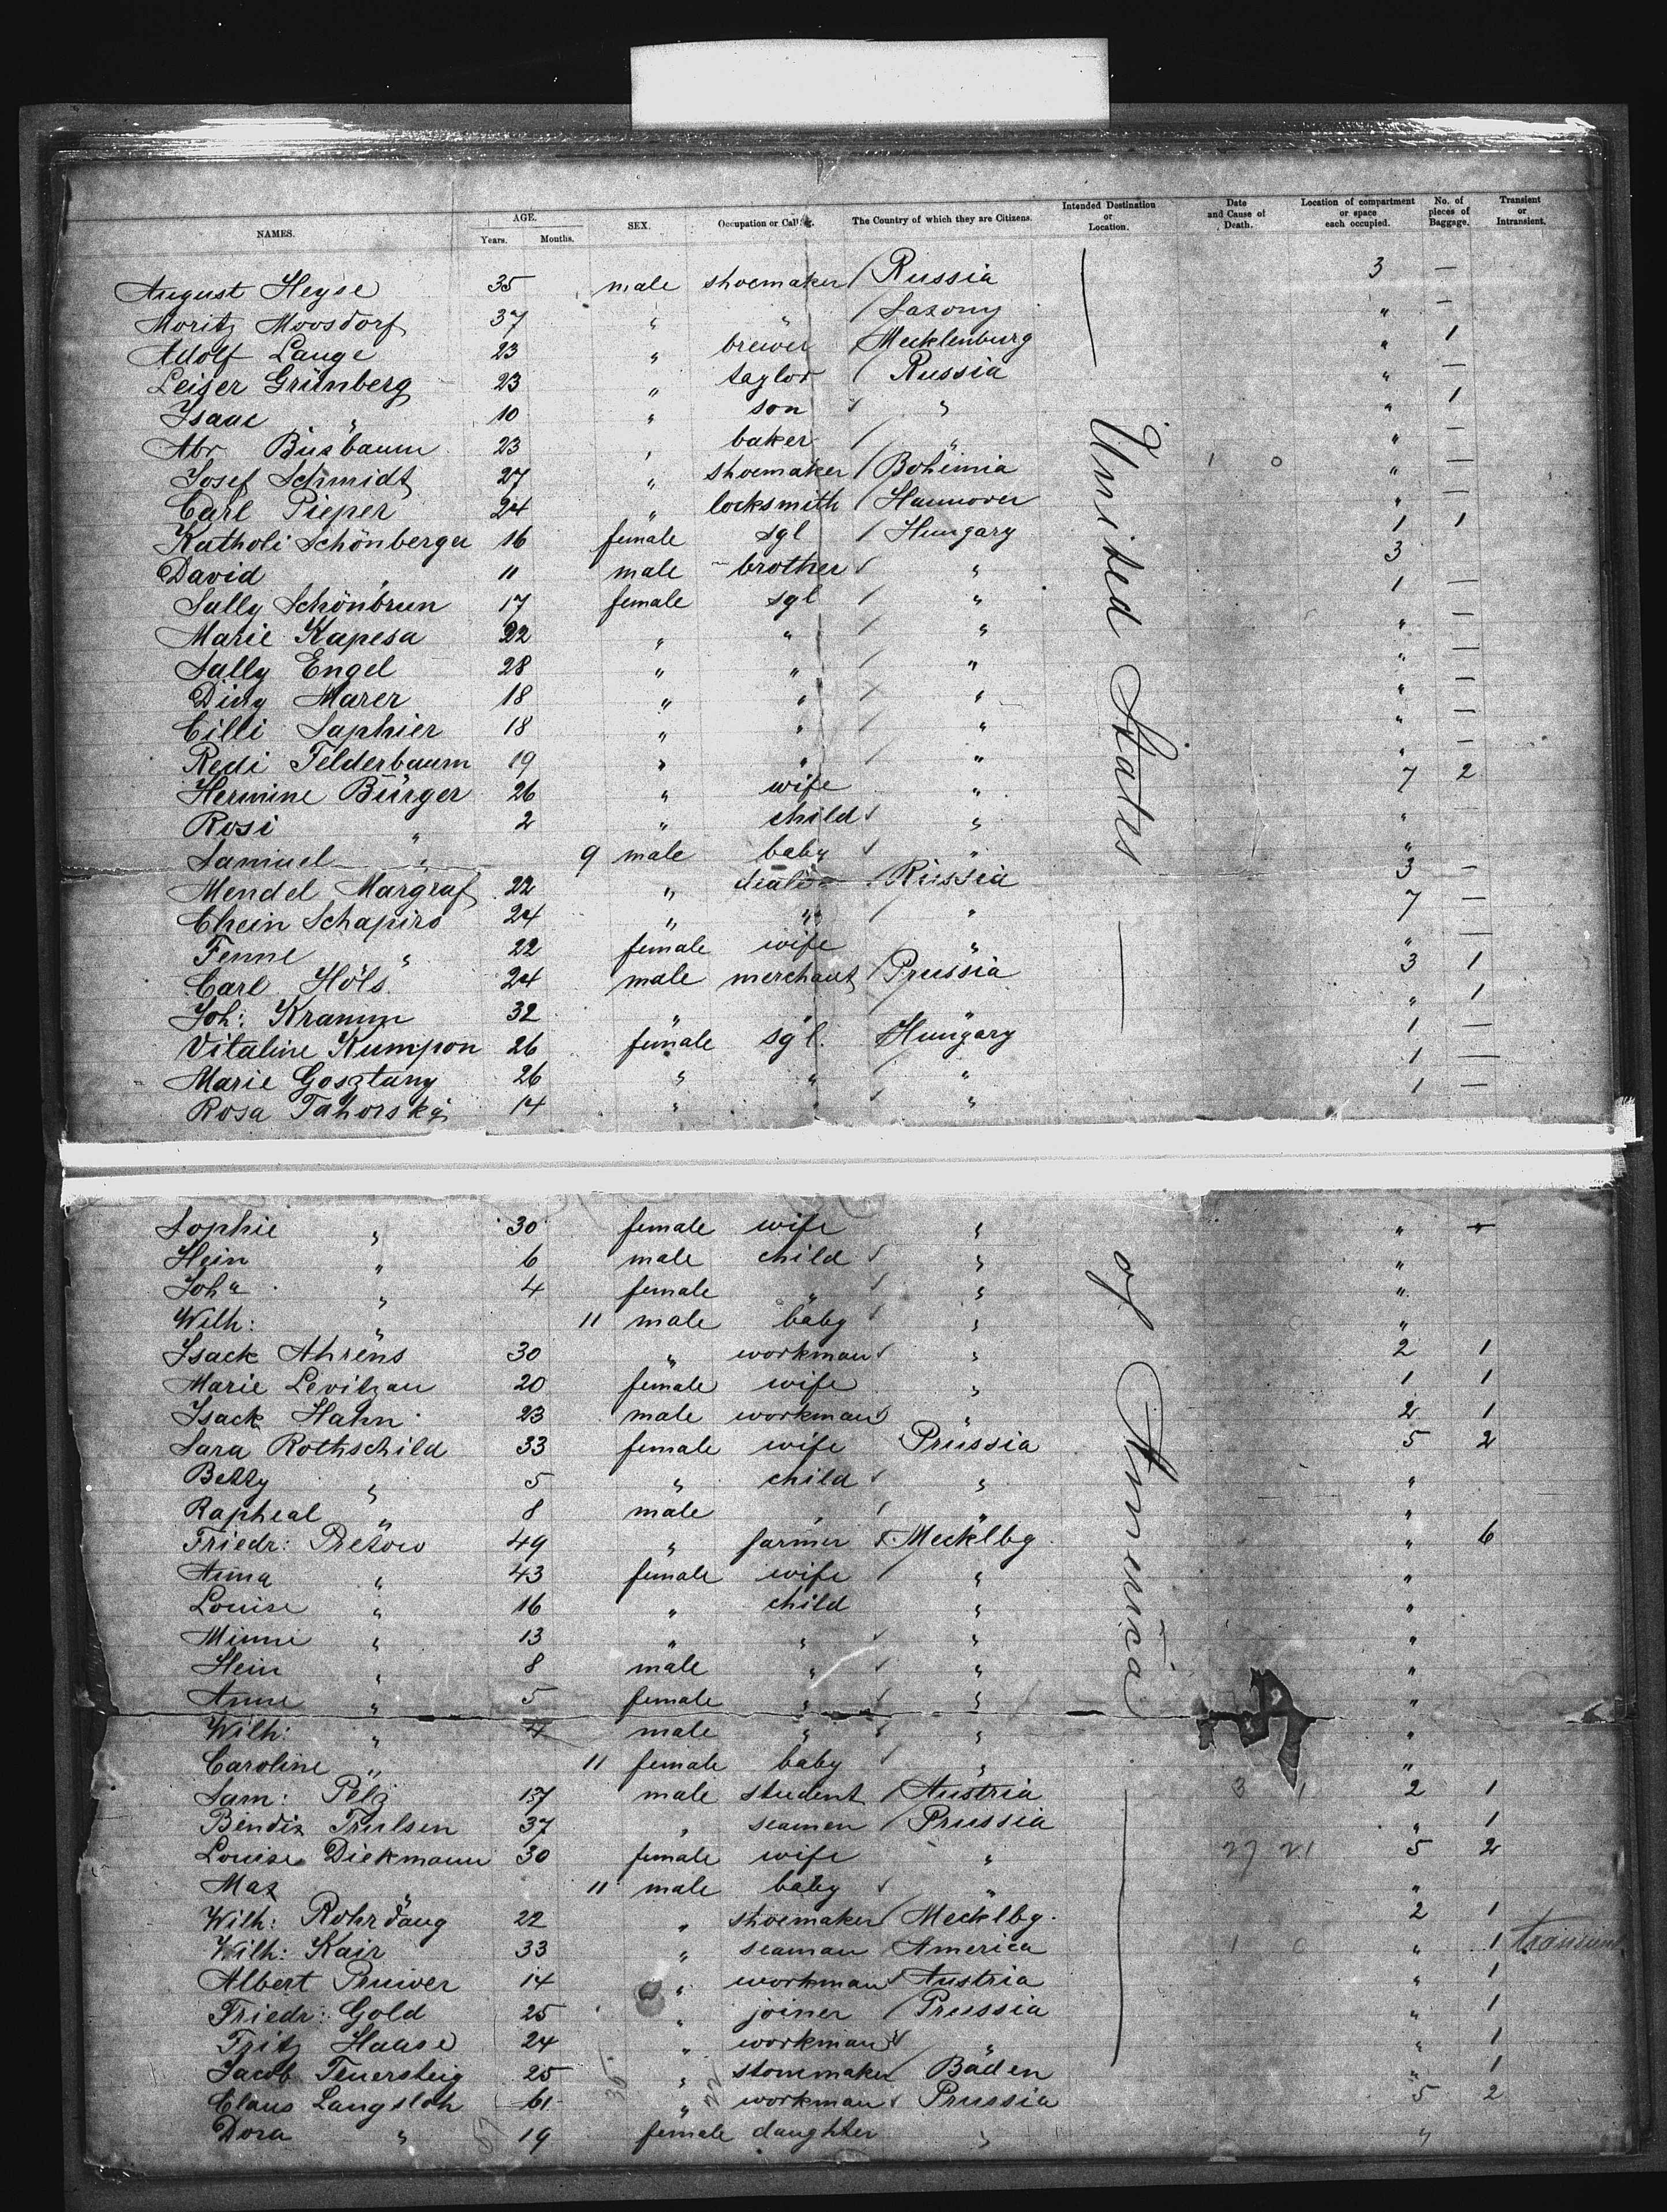 NAMES. AGE. Years. Months. SEX. Occupation or Calling. The Country of which they are Citizens. Intended Destination or Location. Date and Cause of Death. Location of compartment or space each occupied. No. of pieces of Baggage. Transient or Intransient.
August Heyse 35 male shoemaker / Russia 3 —
Moritz Moosdorf 37 " " / Saxony " —
Adolf Lange 23 " brewer / Mecklenburg " 1
Leiser Grünberg 23 " taylor / Russia " —
Isaac " 10 " son √ " " 1
Abr Busbaum 23 " baker / " " —
Josef Schmidt 27 " shoemaker / Bohemia 1 0 " —
Carl Pieper 24 " locksmith / Hannover " —
Katholi Schönberger 16 female sgl / Hungary 1 1
David " 11 male brother √ " 3
Sally Schönbrun 17 female sgl / " 1 —
Marie Kapesa 22 " " / " " —
Sally Engel 28 " " / " " —
Diny Marer 18 " " / " " —
Cilli Saphier 18 " " / " " —
Redi Felderbaum 19 " " / " " —
Hermine Bürger 26 " wife " 7 2
Rosi " 2 " child √ " "
Samuel " 9 male baby √ " "
Mendel Margraf 22 " / Russia 3 —
Chein Schapiro 24 " " / " 7 —
Fenne " 22 female wife " " —
Carl Höls 24 male merchant / Prussia 3 1
Joh: Kramm 32 " " / " " 1
Vitaline Kumpon 26 female sgl. Hungary 1 —
Marie Gosztany 26 " " / " 1 —
Rosa Tahorska 14 " " √ " 1 —
United States
Sophie " 30 female wife " " —
Hein " 6 male child √ " "
Joha " 4 female " √ " "
Wilh: " 11 male baby √ " "
Isack Ahrens 30 " workman √ " 2 1
Marie Levitzau 20 female wife " 1 1
Isack Hahn 23 male workman √ " 2 1
Sara Rothschild 33 female wife Prussia 5 2
Betty " 5 " child √ " "
Rapheal " 8 male " / " "
Friedr: Pretow 49 " farmer √ Mecklbg. " 6
Anna " 43 female wife / " "
Louise " 16 " child " "
Minni " 13 " " √ " "
Hein " 8 male " √ " "
Anne " 5 female " √ " "
Wilh: " 4 male " √ " "
Caroline " 11 female baby √ " "
Sam: Pelz 17 male student / Austria 3 1 2 1
Bendix Trulsen 37 " seamen / Prussia " 1
Louise Diekmann 30 female wife " 27 21 5 2
Max " 11 male baby √ " "
Wilh: Rohrdang 22 " shoemaker / Mecklbg. 2 1
Wilh: Kair 33 " seaman America 1 0 " 1 transient
Albert Pruwer 14 " workman √ Austria " 1
Friedr: Gold 25 " joiner / Prussia " 1
Fritz Haase 24 " workman √ " " 1
Jacob Feuersteig 25 " Baden " 1
Claus Langsloh 61 " workman √ Prussia 5 2
Dora " 19 female daughter " "
of America